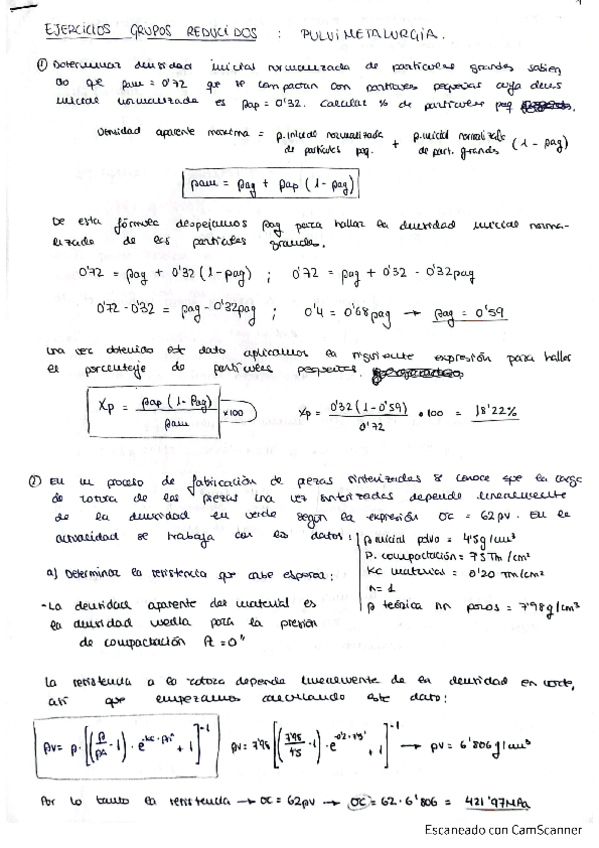 EJERCICIOS GRUPOS REDUCIDOS : PULVIMETALURGIA.
① Determinar densidad inicial normalizada de partículas grandes sabien
do que ρam = 0'72 que se compactan con partículas pequeñas cuya dens
inicial normalizada es ρap = 0'32. Calcular % de partículas peq
Densidad aparente maxima = ρ.inicial normalizada de particulas peq. + ρ.inicial normalizada de part. grandes (1 - ρag)
ρam = ρag + ρap (1 - ρag)
De esta fórmula despejamos ρag para hallar la densidad inicial norma-
lizada de las partículas grandes.
0'72 = ρag + 0'32 (1 - ρag) ; 0'72 = ρag + 0'32 - 0'32ρag
0'72 - 0'32 = ρag - 0'32ρag ; 0'4 = 0'68ρag → ρag = 0'59
Una vez obtenido este dato aplicamos la siguiente expresión para hallar
el porcentaje de partículas pequeñas.
Xp = ρap (1 - ρag) / ρam x100 Xp = 0'32 (1 - 0'59) / 0'72 · 100 = 18'22%
② En un proceso de fabricación de piezas sinterizadas se conoce que la carga
de rotura de las piezas una vez sinterizadas depende linealmente
de la densidad en verde según la expresión σc = 62ρv. En la
actualidad se trabaja con los datos:
ρ inicial polvo = 4'5g/cm³
P. compactación = 7'5Tm/cm²
Kc material = 0'20 Tm/cm²
n = 1
ρ teórica sin poros = 7'98g/cm³
a) Determinar la resistencia que cabe esperar:
- La densidad aparente del material es
la densidad medida para la presión
de compactación P = "0"
La resistencia a la rotura depende linealmente de la densidad en verde,
así que empezamos calculando este dato:
ρv = ρ · [(ρ/ρa - 1) · e^(-kc · Pⁿ) + 1]⁻¹ ρv = 7'98 [(7'98/4'5 - 1) · e^(-0'2 · 7'5¹) + 1]⁻¹ → ρv = 6'806g/cm³
Por lo tanto la resistencia → σc = 62ρv → σc = 62 · 6'806 = 421'97MPa
Escaneado con CamScanner